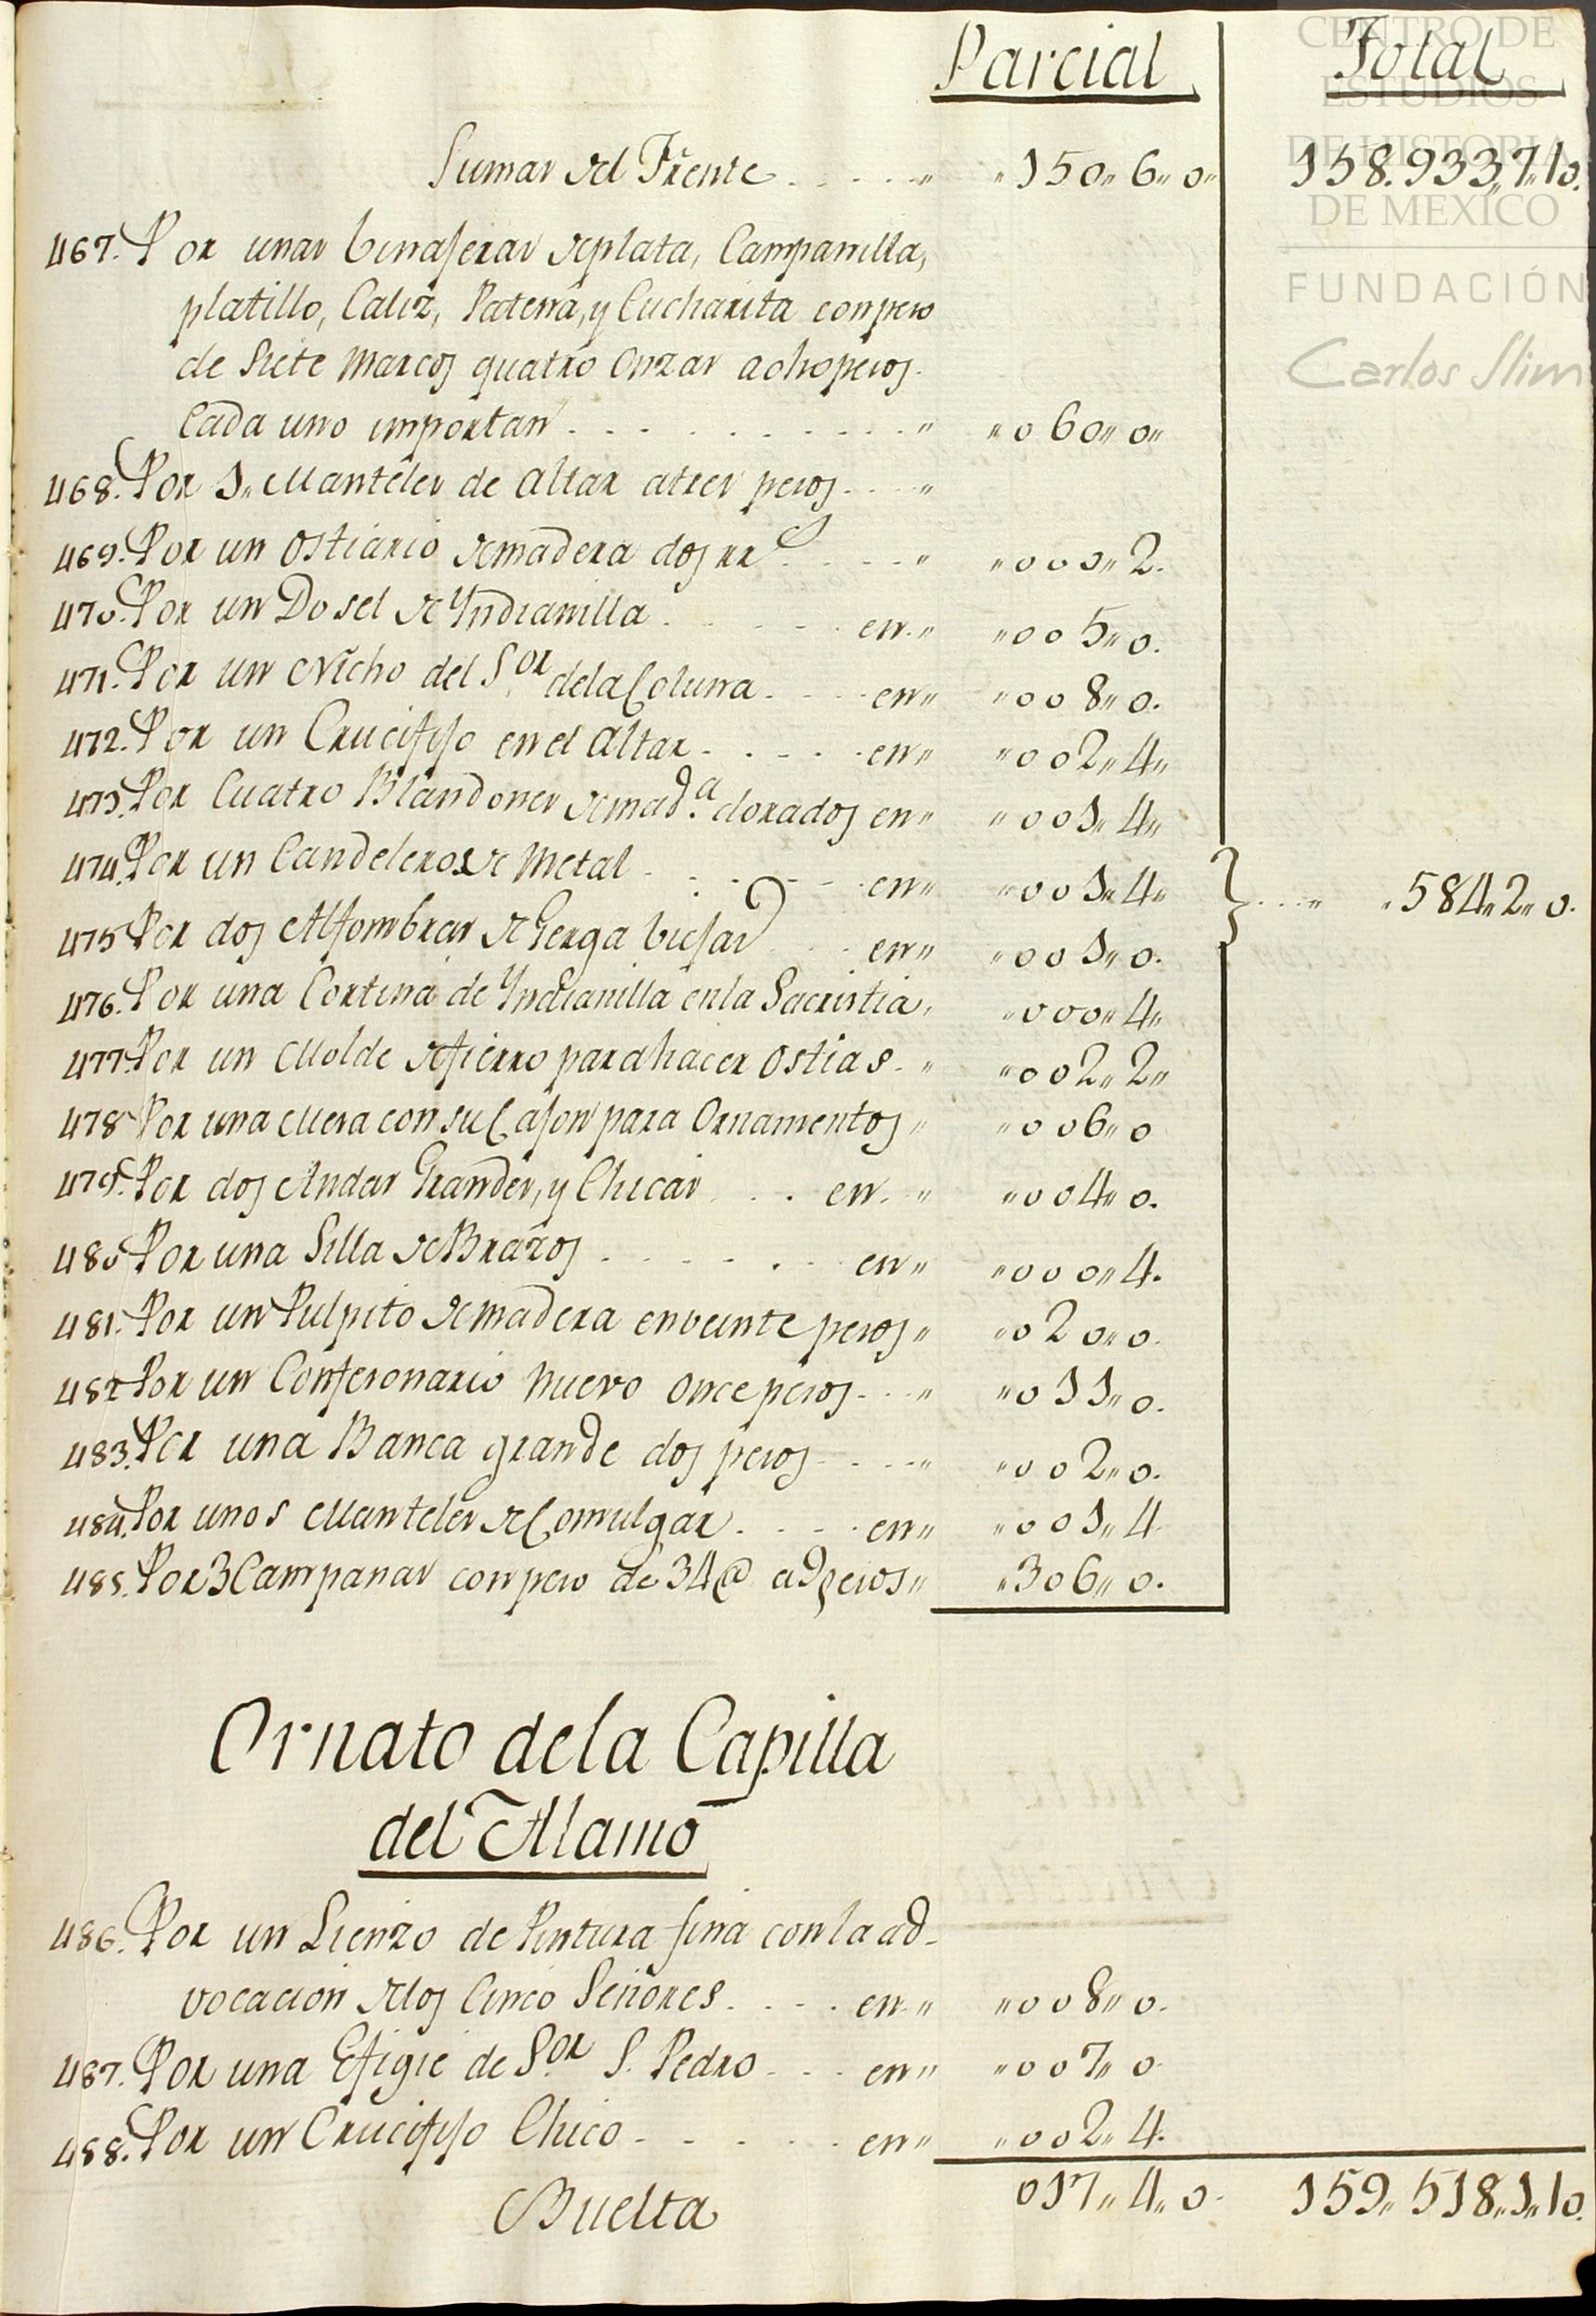 Parcial Total
CENTRO DE ESTUDIOS DE HISTORIA DE MEXICO
FUNDACIÓN
Carlos Slim
Sumas del Frente " 150" 6" 0" 158.933"7"10.
467. Por unas binajeras de plata, Campanilla,
platillo, Caliz, Patena, y Cucharita con peso
de Siete Marcos quatro Onzas a ocho pesos
Cada uno importan " " 060" 0"
468. Por 1" Manteles de Altar a tres pesos "
469. Por un Ostiario de madera dos rr.s " "000" 2.
470. Por un Dosel de Yndianilla en " "005" 0.
471. Por un Nicho del S.or dela Coluna en " "008" 0.
472. Por un Crucifijo en el Altar en " "002" 4"
473. Por Cuatro Blandones de mad.a dorados en " "001" 4"
474. Por un Candelero de Metal en " "001" 4" } " "584"2"0.
475. Por dos Alfombras de Gerga biejas en " "001" 0.
476. Por una Cortina de Yndianilla en la Sacristia, "000" 4"
477. Por un Molde de fierro para hacer Ostias " "002" 2"
478. Por una Mesa con su Cajon para Ornamentos " "006" 0
479. Por dos Andas Grandes, y Chicas en " "004" 0.
480. Por una Silla de Brazos en " "000" 4.
481. Por un Pulpito de madera en veinte pesos " "020" 0.
482. Por un Confesonario nuevo once pesos " "011" 0.
483. Por una Banca grande dos pesos " "002" 0.
484. Por unos Manteles de Comulgar en " "001" 4
485. Por 3 Campanas con peso de 34@ a 9 pesos " "306" 0.
Ornato dela Capilla
del Alamo
486. Por un Lienzo de Pintura fina con la ad-
vocacion de los Cinco Señores en " "008" 0.
487. Por una Efigie de S.or S. Pedro en " "007" 0
488. Por un Crucifijo Chico en " "002" 4.
Buelta 017" 4" 0 159" 518"1"10.